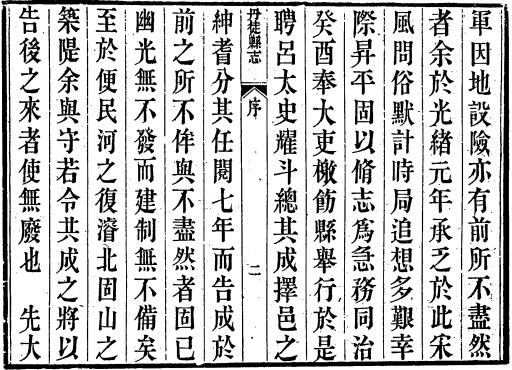 軍因地設險亦有前所不盡然
者余於光緒元年承乏於此宋
風問俗默計時局追想多艱幸
際昇平固以脩志爲急務同治
癸酉奉大吏檄飭縣舉行於是
聘呂太史耀斗總其成擇邑之
丹徒縣志 序 二
紳耆分其任閱七年而告成於
前之所不侔與不盡然者固已
幽光無不發而建制無不備矣
至於便民河之復濬北固山之
築隄余與守若令共成之將以
告後之來者使無廢也 先大